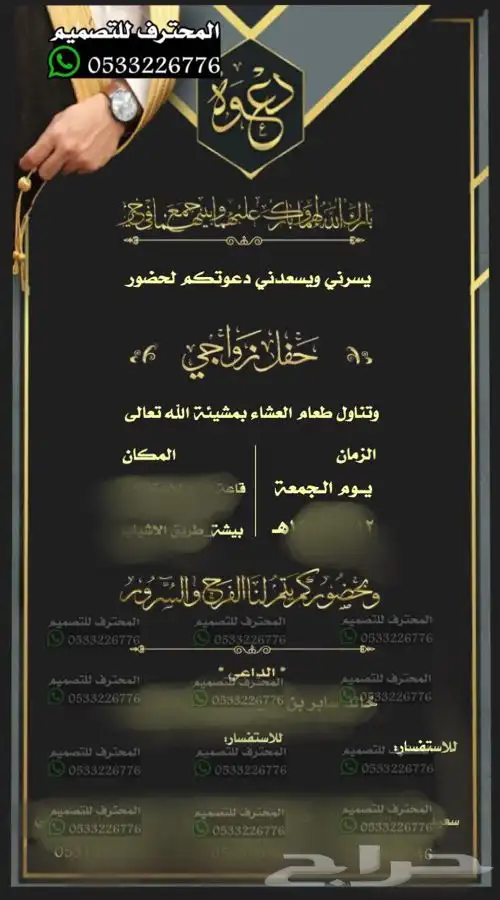 المحترف للتصميم
0533226776
دعوة
بارك الله لهما وبارك عليهما وجمع بينهما في خير
يسرني ويسعدني دعوتكم لحضور
حفل زواجي
وتناول طعام العشاء بمشيئة الله تعالى
الزمان
المكان
يوم الجمعة
قاعة
هـ
بيشة_طريق
وبحضوركم يتم لنا الفرح والسرور
المحترف للتصميم المحترف للتصميم المحترف للتصميم
0533226776 0533226776 0533226776
* الداعي *
المحترف للتصميم المحترف للتصميم المحترف للتصميم
0533226776 0533226776 0533226776
بن
للاستفسار:
للاستفسار:
المحترف للتصميم المحترف للتصميم المحترف للتصميم
0533226776 0533226776 0533226776
المحترف للتصميم المحترف للتصميم المحترف للتصميم
0533226776 0533226776 0533226776
حراج